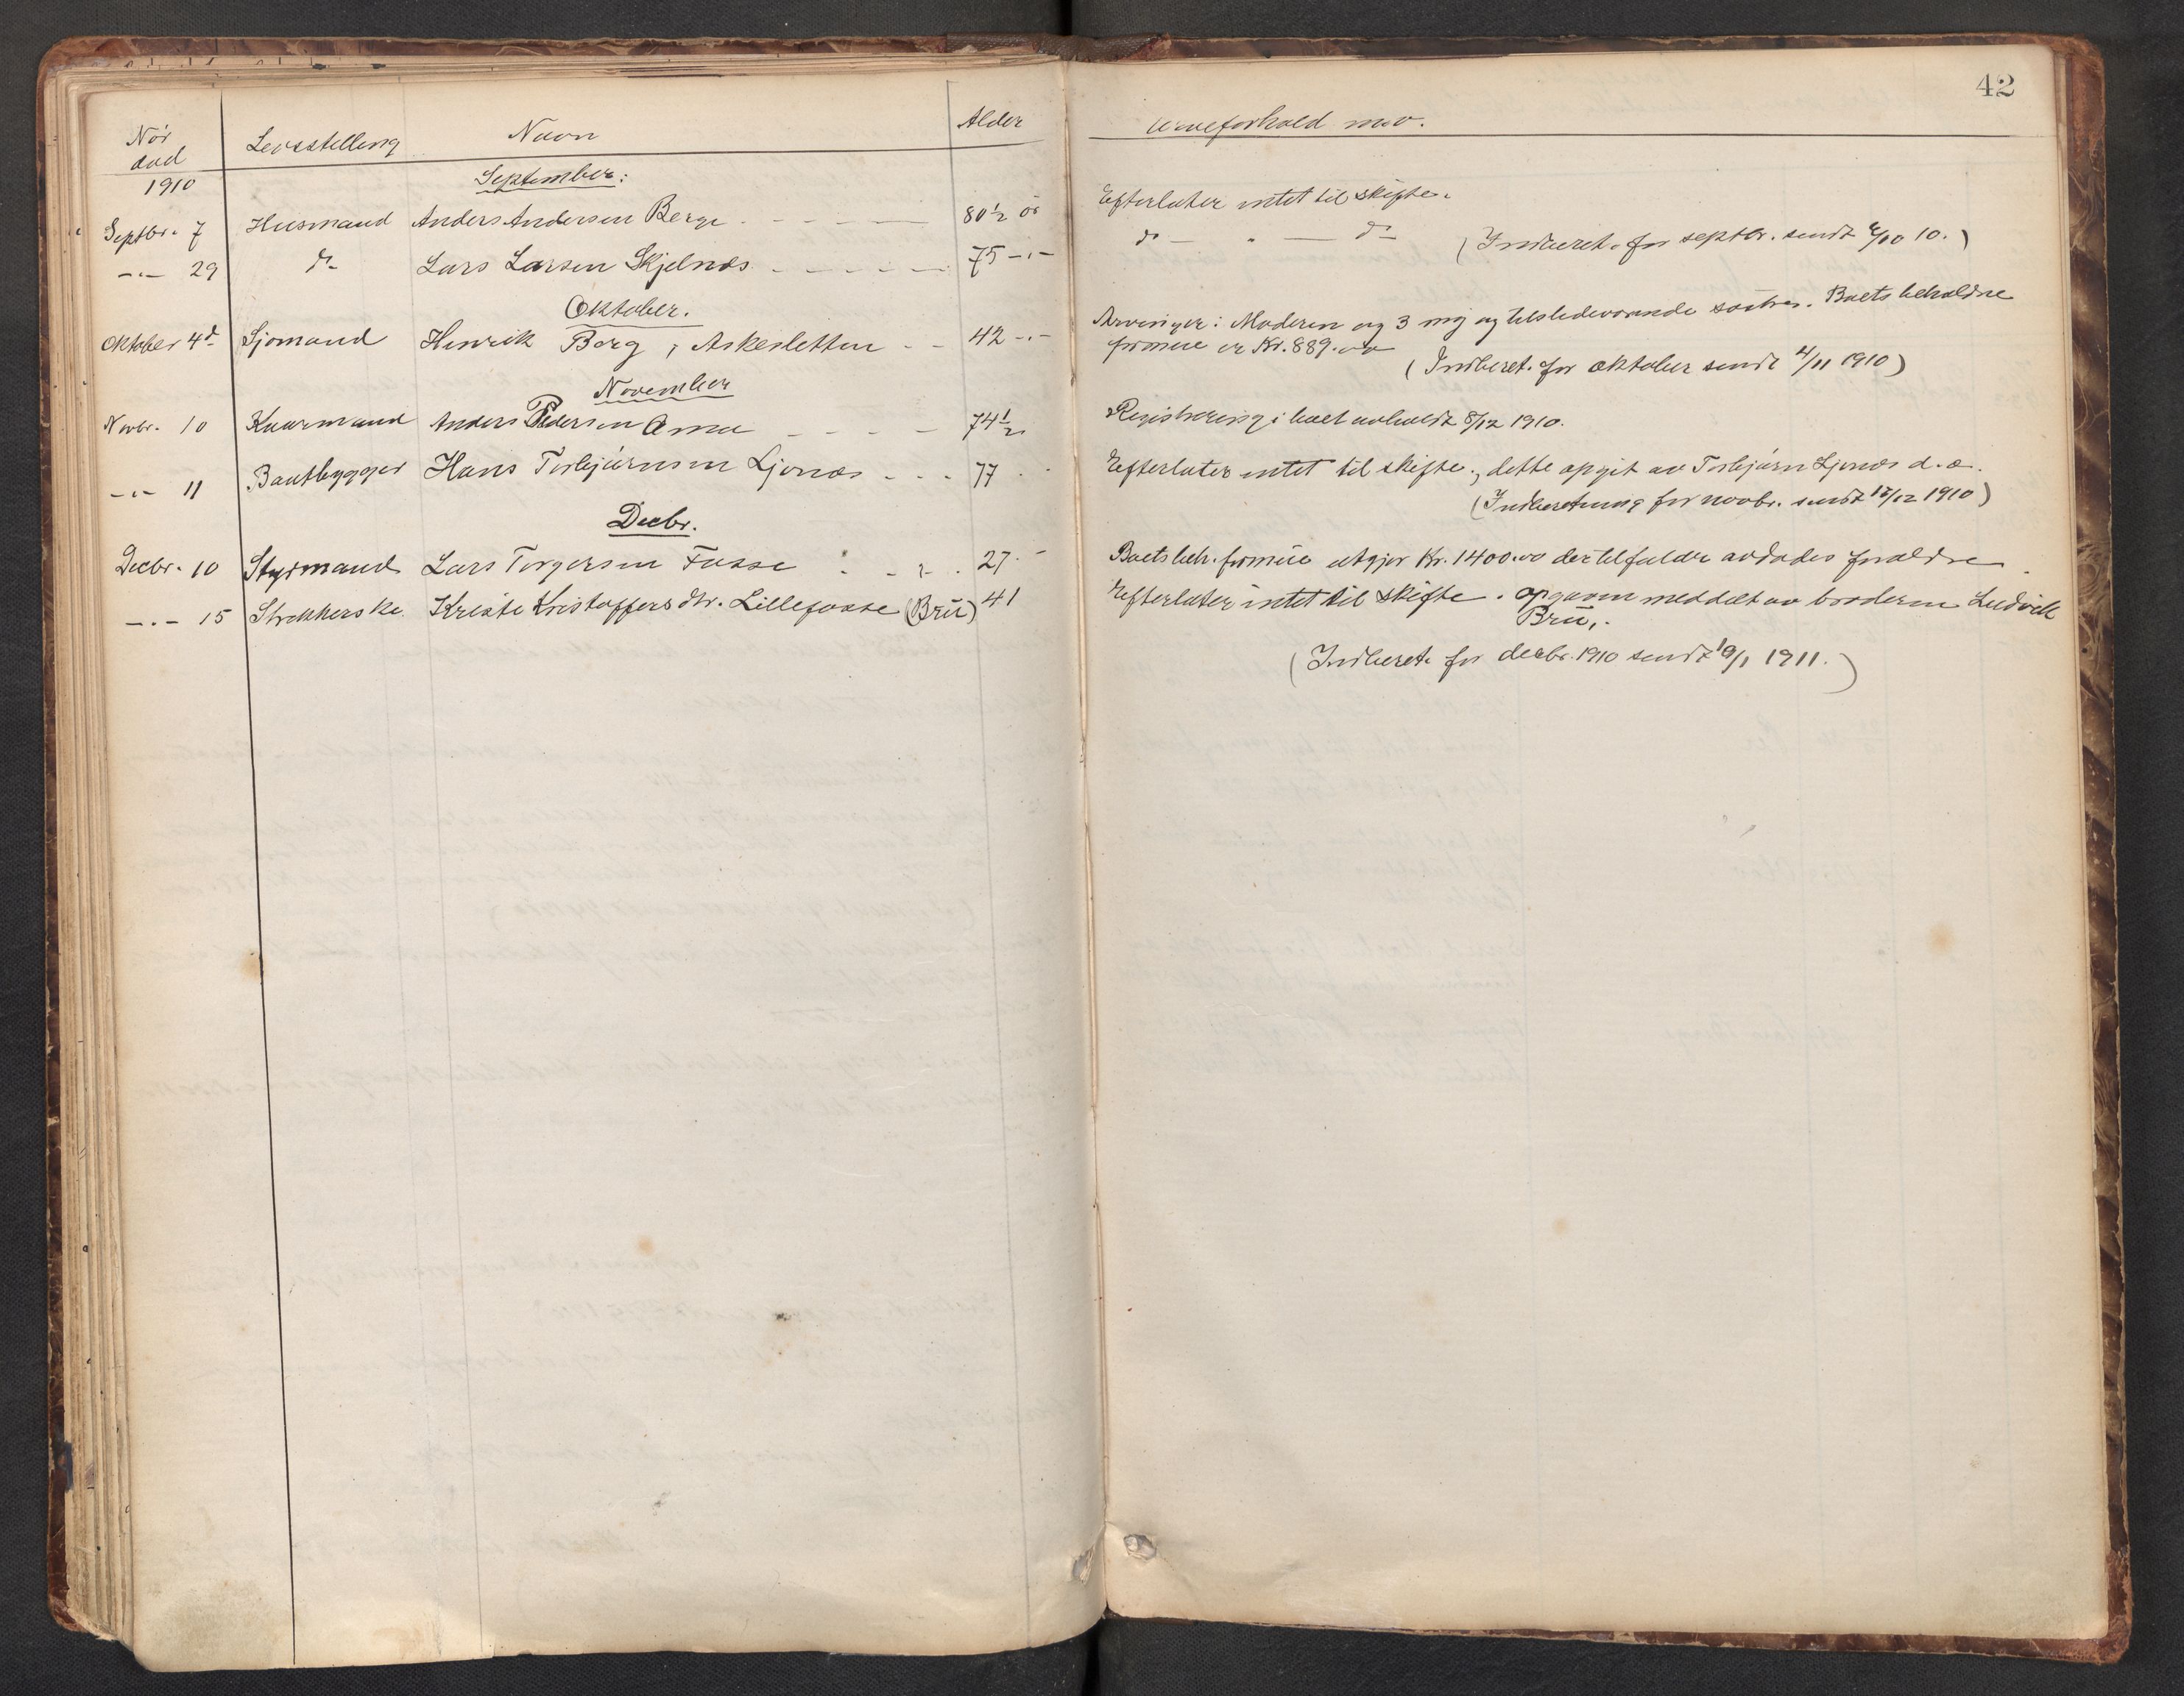 42
Når død Levsstilling Navn Alder Arveforhold m.v.
1910 September:
Septbr. 7 Husmand Anders Andersen Berge - - - - 80 1/2 år Efterlater intet til skifte.
-"- 29 do Lars Larsen Skjelnæs - - - - 75 -"- do - " - do (Indberet. for septbr. sendt /10 10.)
Oktober.
Oktober 4d Sjømand Henrik Berg, Askesletten - - 42 -"- Arvinger: Moderen og 3 myn og tilstedeværende søstre. Boets beholdne
formue er Kr. 889.00
(Indberet. for oktober sendt 4/11 1910)
November
Novbr. 10 Kaarmand Anders Pedersen - - - - 74 1/2 Registrering i boet avholdt 8/12 1910.
-"- 11 Baatbygger Hans Torbjørnsen Ljonæs - - - 77 Efterlater intet til skifte, dette opgit av Torbjørn Ljonæs d.æ.
(Indberetning for novbr. sendt 12/12 1910)
Decbr.
Decbr. 10 Styrmand Lars Torgersen Fosse - - - 27 -"- Boets beh. formue utgjør Kr. 1400.00 der tilfalder avdødes forældre
-"- 15 Strikkerske Kristi Kristoffersdtr. Lillefosse (Brū) 41 Efterlater intet til skifte. Opgaven meddelt av broderen Ludvik
Brū,.
(Indberet. for decbr. 1910 sendt 10/1 1911.)